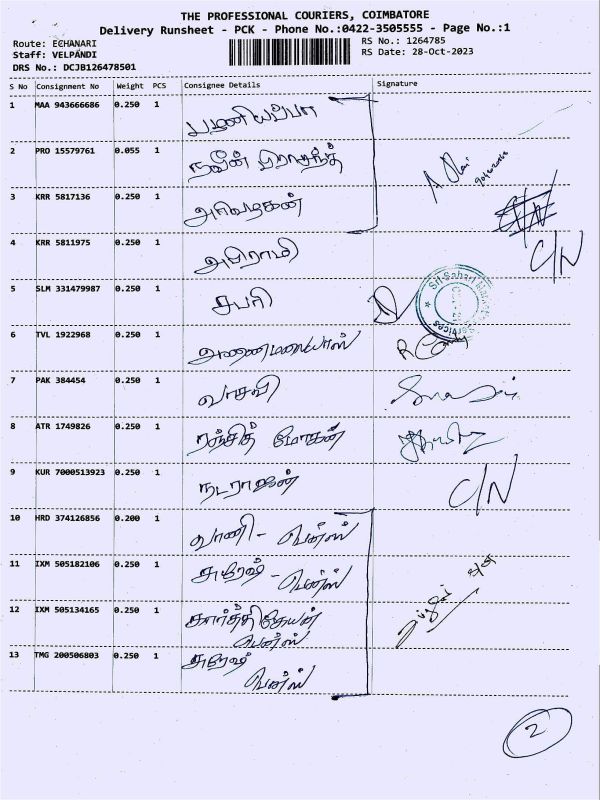 THE PROFESSIONAL COURIERS, COIMBATORE
Delivery Runsheet - PCK - Phone No.:0422-3505555 - Page No.:1
Route: ECHANARI
Staff: VELPANDI
DRS No.: DCJB126478501
RS No.: 1264785
RS Date: 28-Oct-2023
S No Consignment No Weight PCS Consignee Details Signature
1 MAA 943666686 0.250 1 பழனியப்பா
2 PRO 15579761 0.055 1 நவீன் பிரசாந்த்
3 KRR 5817136 0.250 1 அறிவழகன்
4 KRR 5811975 0.250 1 அபிராமி C/N
5 SLM 331479987 0.250 1 சபரி
6 TVL 1922968 0.250 1 அண்ணாமலையார்
7 PAK 384454 0.250 1 வாசவி
8 ATR 1749826 0.250 1 ரஞ்சித் மோகன்
9 KUR 7000513923 0.250 1 நடராஜன் C/N
10 HRD 374126856 0.200 1 வாணி -
11 IXM 505182106 0.250 1 சுரேஷ் -
12 IXM 505134165 0.250 1 கார்த்திகேயன்
13 TMG 200506803 0.250 1
2